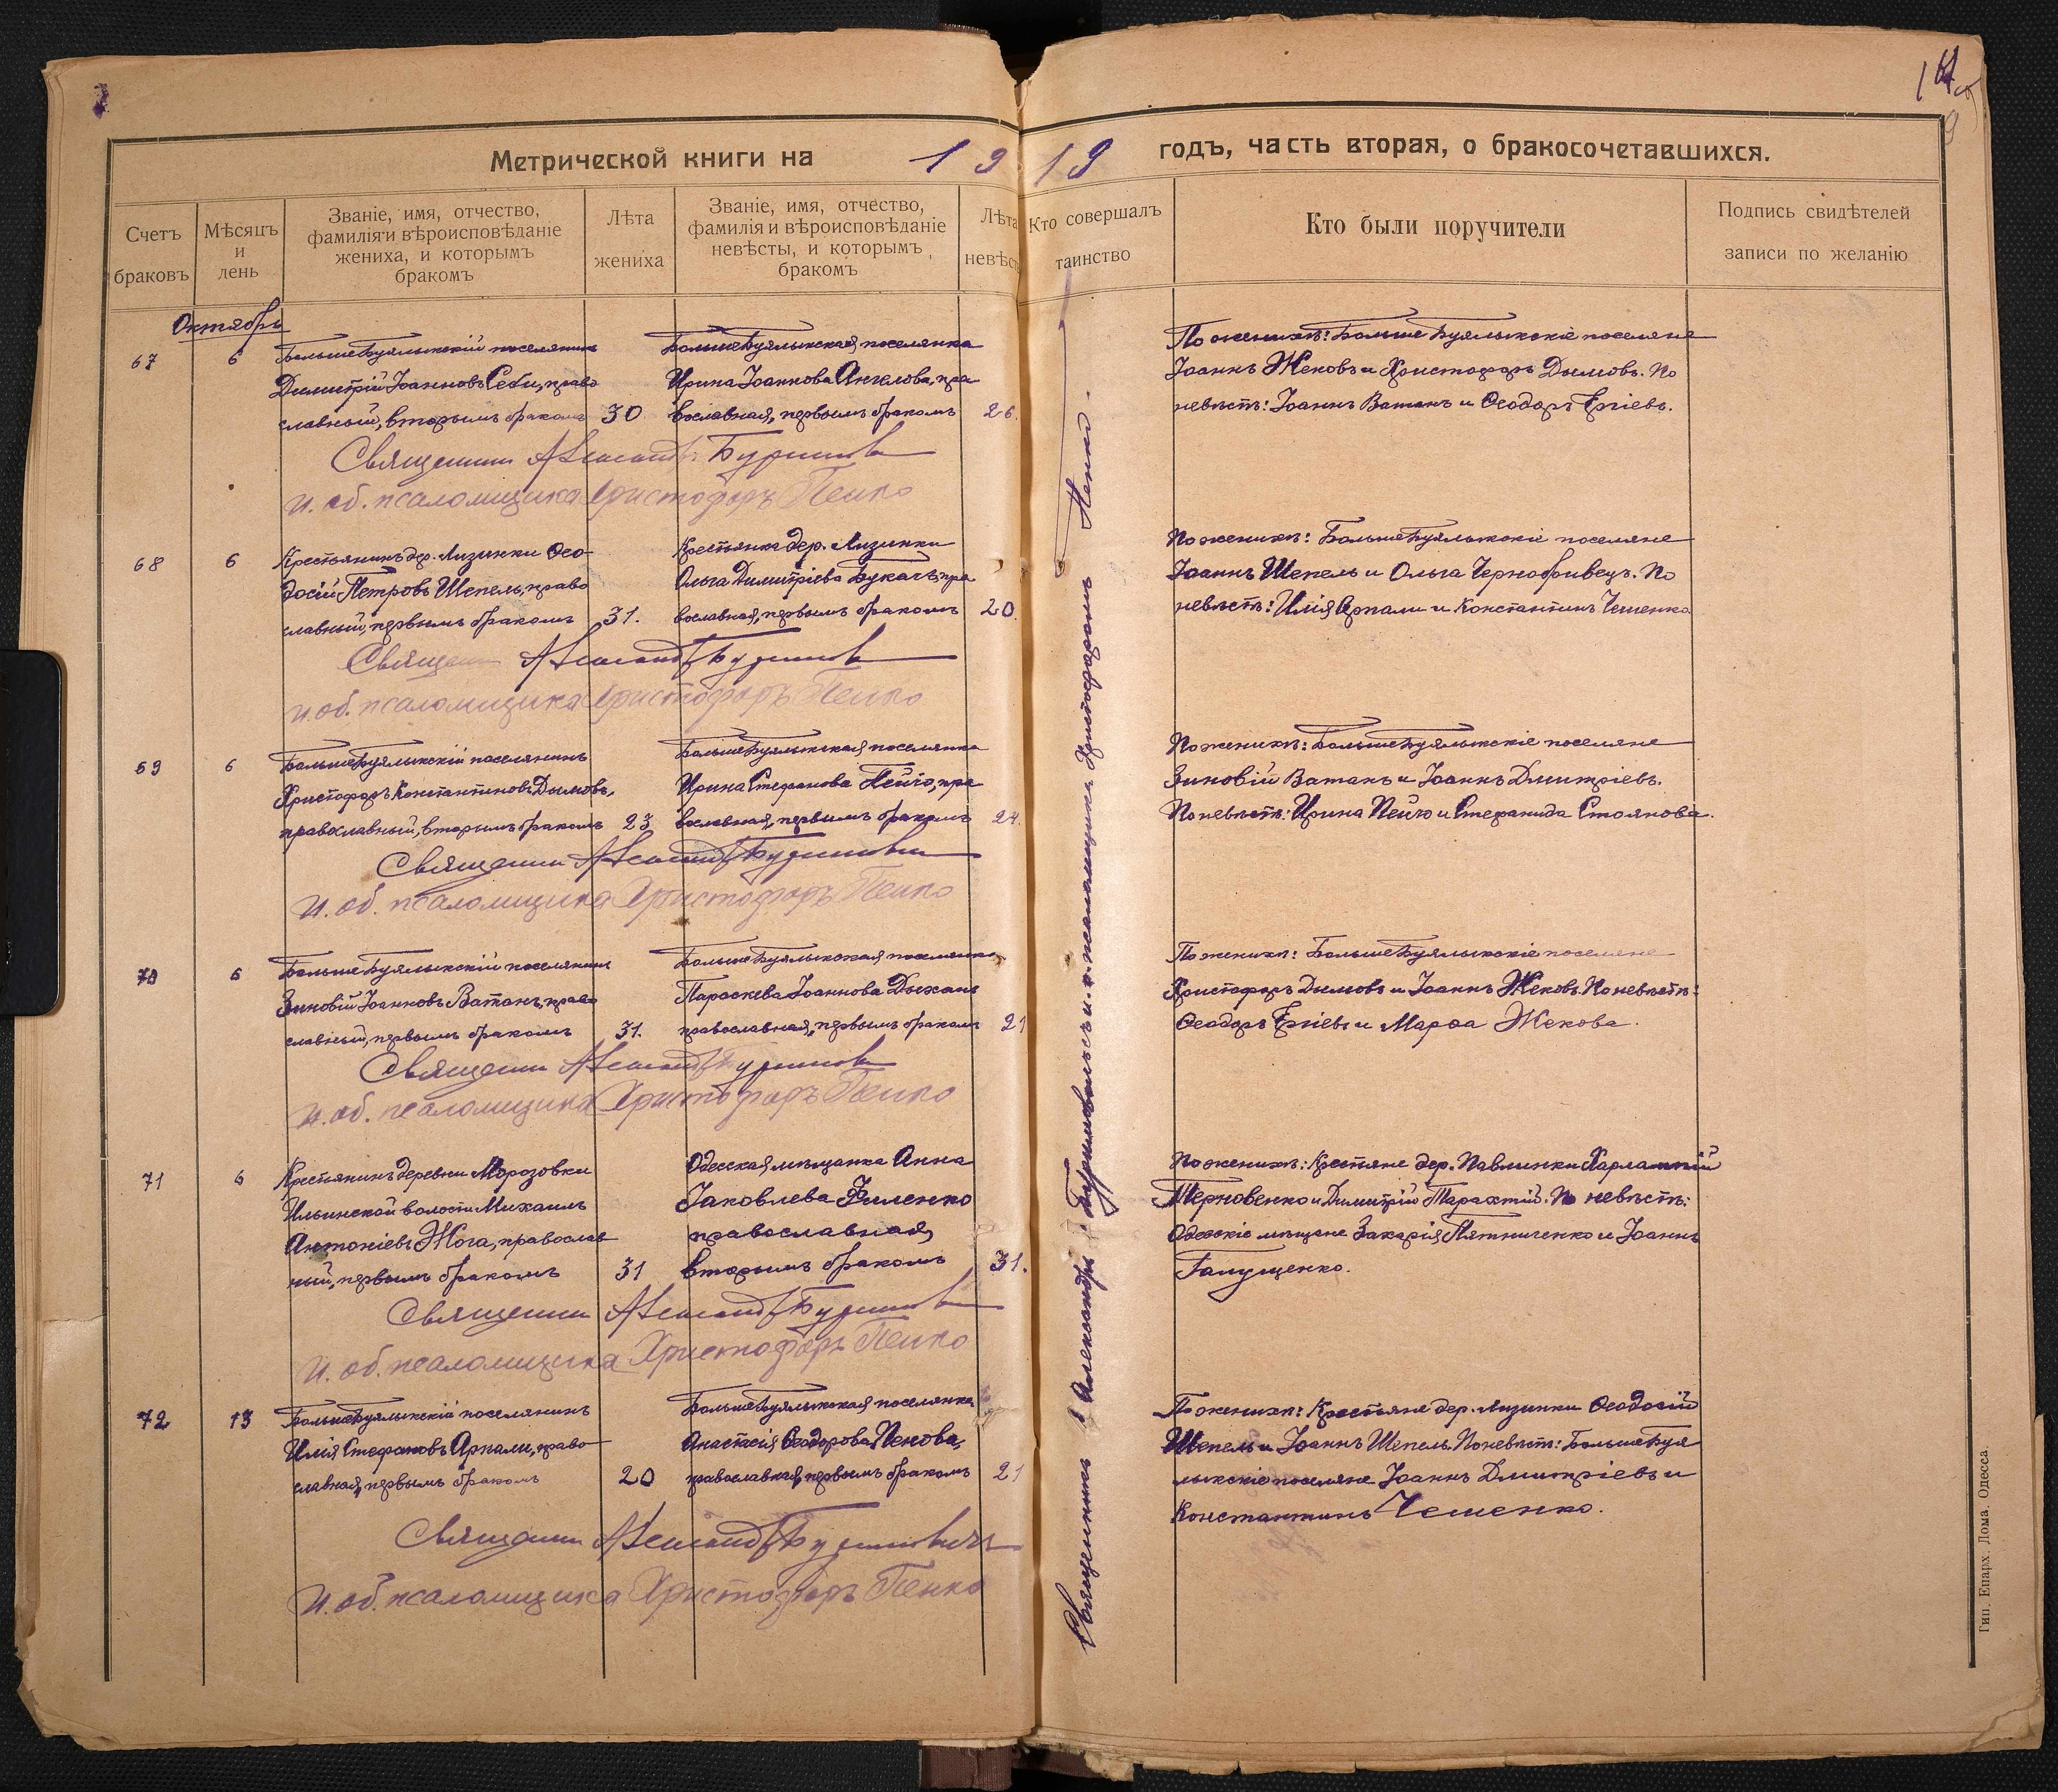 Метрической книги на 1919 годъ, часть вторая, о бракосочетавшихся.
Счетъ браковъ
Мѣсяцъ и день
Званіе, имя, отчество, фамилія и вѣроисповѣданіе жениха, и которымъ бракомъ
Лѣта жениха
Званіе, имя, отчество, фамилія и вѣроисповѣданіе невѣсты, и которымъ бракомъ
Лѣта невѣсты
Кто совершалъ таинство
Кто были поручители
Подпись свидѣтелей записи по желанію
Октябрь
67
6
БольшеБуялыкскій поселянинъ
Димитрій Іоанновъ Себи, право
славный, вторымъ бракомъ
30
БольшеБуялыкская поселянка
Ирина Іоаннова Ангелова, пра
вославная, первымъ бракомъ
26.
По женихѣ: БольшеБуялыкскіе поселяне
Іоаннъ Жековъ и Христофоръ Дымовъ. По
невѣстѣ: Іоаннъ Ватанъ и Ѳеодоръ Ергіевъ.
Священник Александр
И. об. псаломщика Христофоръ Пенко
68
6
Крестьянинъ дер. Лизинки Ѳео-
досій Петровъ Шепель, право
славный, первымъ бракомъ
31.
Крестьянка дер. Лизинки
Ольга Димитріева Букачъ, пра
вославная, первымъ бракомъ
20.
По женихѣ: БольшеБуялыкскіе поселяне
Іоаннъ Шепель и Ольга Чернобривецъ. По
невѣстѣ: Илія Арпали и Константинъ Чешенко
Священник Александр
И. об. псаломщика Христофоръ Пенко
69
6
БольшеБуялыкскій поселянинъ
Христофоръ Константиновъ Дымовъ,
православный, вторымъ бракомъ
23
БольшеБуялыкская поселянка
Ирина Стефанова Пейчо, пра
вославная, первымъ бракомъ
24.
По женихѣ: БольшеБуялыкскіе поселяне
Зиновій Ватанъ и Іоаннъ Димитріевъ.
По невѣстѣ: Ирина Пейчо и Стефанида Стоянова.
Священник Александр
И. об. псаломщика Христофоръ Пенко
70
6
БольшеБуялыкскій поселянинъ
Зиновій Іоанновъ Ватанъ, право
славный, первымъ бракомъ
31.
БольшеБуялыкская поселянка
Параскева Іоаннова Дыханъ
православная, первымъ бракомъ
21
По женихѣ: БольшеБуялыкскіе поселяне
Христофоръ Дымовъ и Іоаннъ Жековъ. По невѣстѣ:
Ѳеодоръ Ергіевъ и Марѳа Жекова.
Священник Александр
И. об. псаломщика Христофоръ Пенко
71
6
Крестьянинъ деревни Морозовки
Ильинской волости Михаилъ
Антоніевъ Жога, православ
ный, первымъ бракомъ
31
Одесская мѣщанка Анна
Іаковлева Филенко
православная,
вторымъ бракомъ
31.
По женихѣ: Крестьяне дер. Павлинки Харлампій
Терновенко и Димитрій Тарахтій. По невѣстѣ:
Одесскіе мѣщане Захарія Пятниченко и Іоаннъ
Галущенко.
Священник Александр
И. об. псаломщика Христофоръ Пенко
72
13
БольшеБуялыкскій поселянинъ
Илія Стефановъ Арпали, право
славная, первымъ бракомъ
20
БольшеБуялыкская поселянка
Анастасія Ѳеодорова Пенова,
православная, первымъ бракомъ
21
По женихѣ: Крестьяне дер. Лизинки Ѳеодосій
Шепель и Іоаннъ Шепель. По невѣстѣ: БольшеБуя
лыкскіе поселяне Іоаннъ Димитріевъ и
Константинъ Чешенко.
Священник Александр
И. об. псаломщика Христофоръ Пенко
Священникъ Александръ съ и. о. псаломщика Христофоромъ Пенко.
Тип. Епарх. Дома. Одесса.